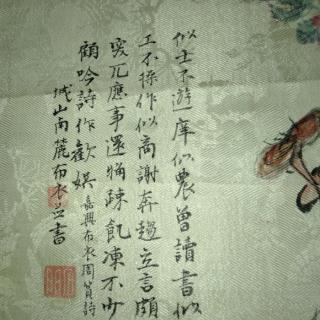 似士不遊庠似農曾讀書似
工不操作似商謝奔趨立言頗
突兀應事還觕疎飢凍不少
顧吟詩作歡娛嘉興布衣周篔詩
城山南麓布衣書